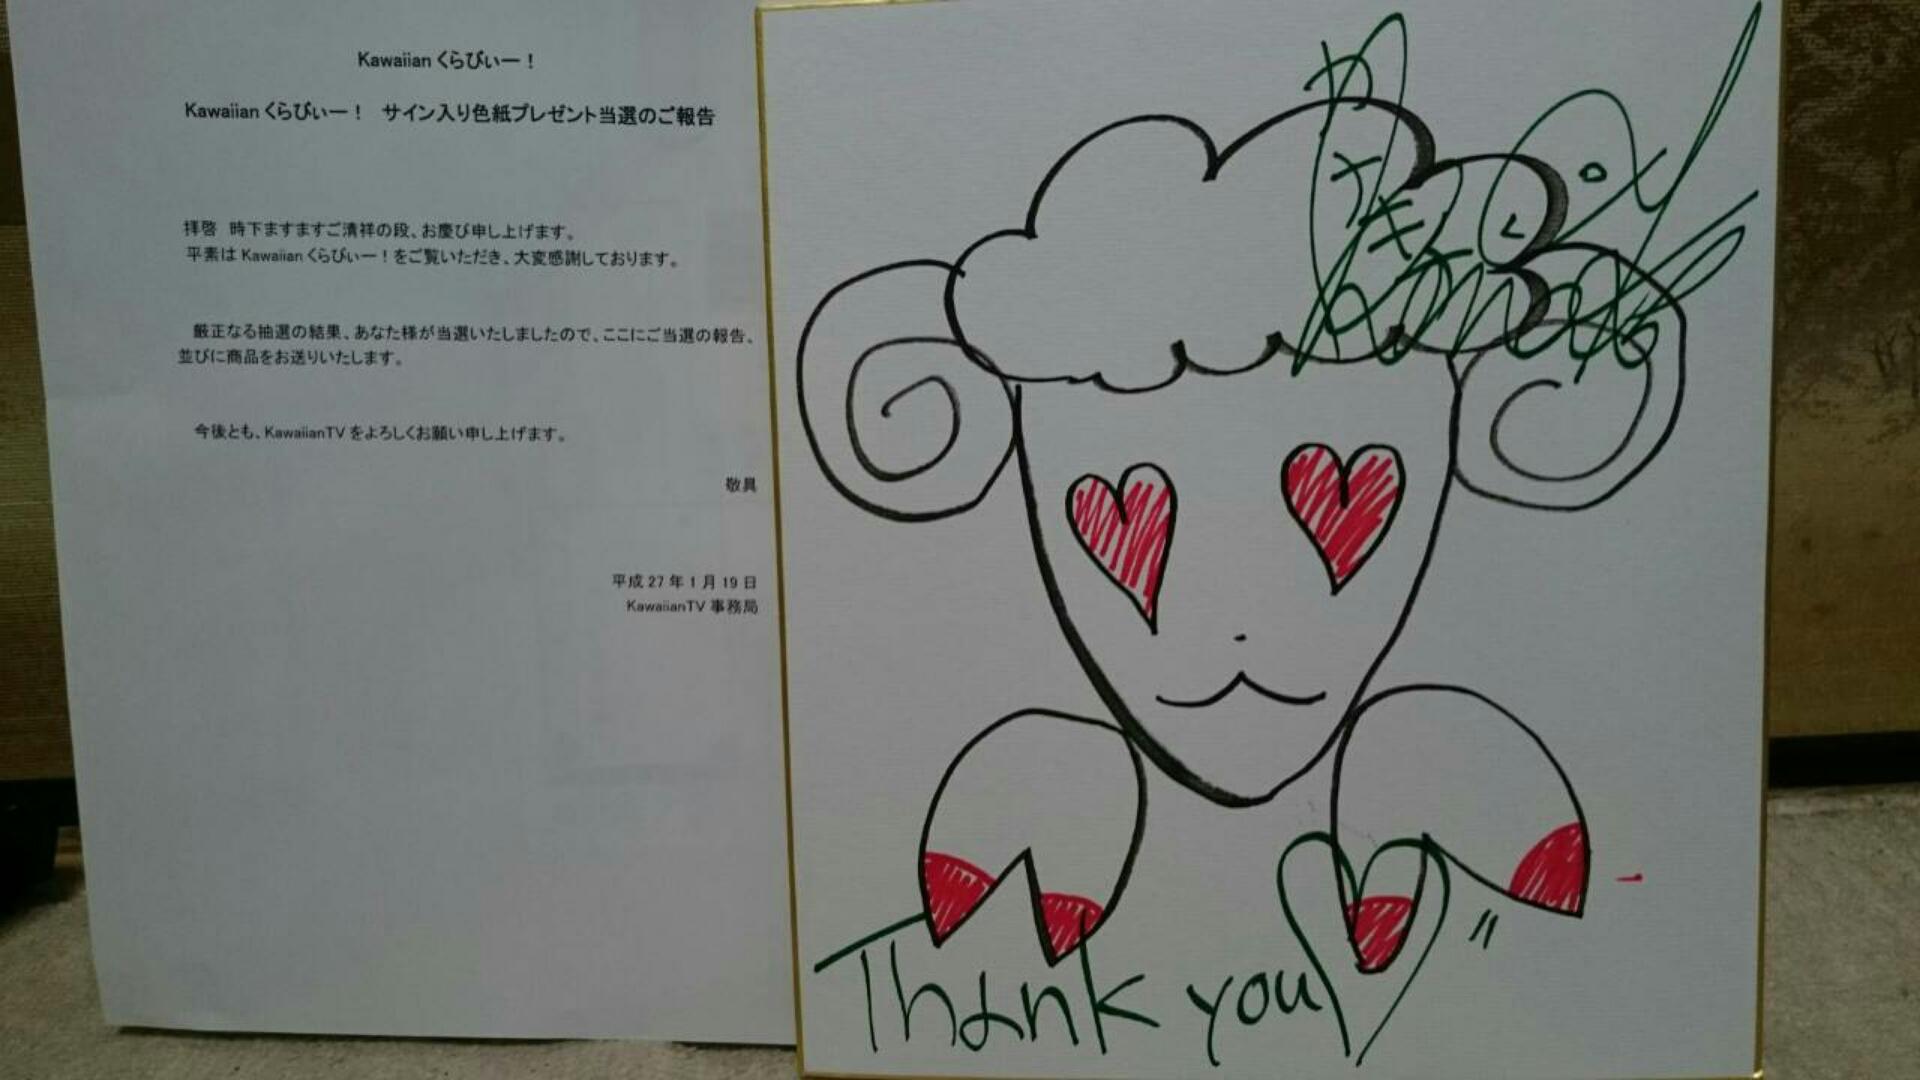 Kawaiian くらびぃー！
Kawaiian くらびぃー！　サイン入り色紙プレゼント当選のご報告
拝啓　時下ますますご清祥の段、お慶び申し上げます。
平素は Kawaiian くらびぃー！をご覧いただき、大変感謝しております。
厳正なる抽選の結果、あなた様が当選いたしましたので、ここにご当選の報告、
並びに商品をお送りいたします。
今後とも、KawaiianTV をよろしくお願い申し上げます。
敬具
平成 27 年 1 月 19 日
KawaiianTV 事務局
Thank you